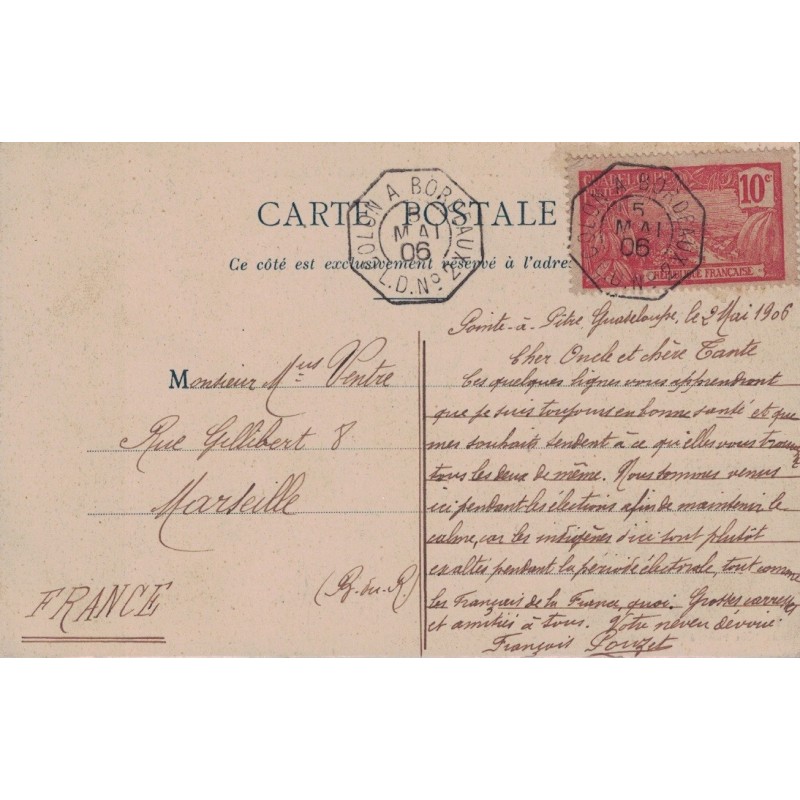 CARTE POSTALE
Ce côté est exclusivement réservé à l'adresse
COLON A BORDEAUX
5
MAI
06
L.D. No 2
GUADELOUPE
10c
RÉPUBLIQUE FRANÇAISE
COLON A BORDEAUX
5
MAI
06
L.D. N
Pointe-à-Pitre Guadeloupe, le 2 Mai 1906
Cher Oncle et chère Tante
Ces quelques lignes vous apprendront
que je suis toujours en bonne santé et que
mes souhaits tendent à ce qu'elles vous trouve
tous les deux de même. Nous sommes venus
ici pendant les élections afin de maintenir le
calme, car les indigènes d'ici sont plutôt
exaltés pendant la période électorale, tout comme
les Français de la France, quoi. Grosses caresses
et amitiés à tous. Votre neveu dévoué
François Louzet
Monsieur Mius Ventre
Rue Gillibert 8
Marseille
(B.-du-R)
FRANCE